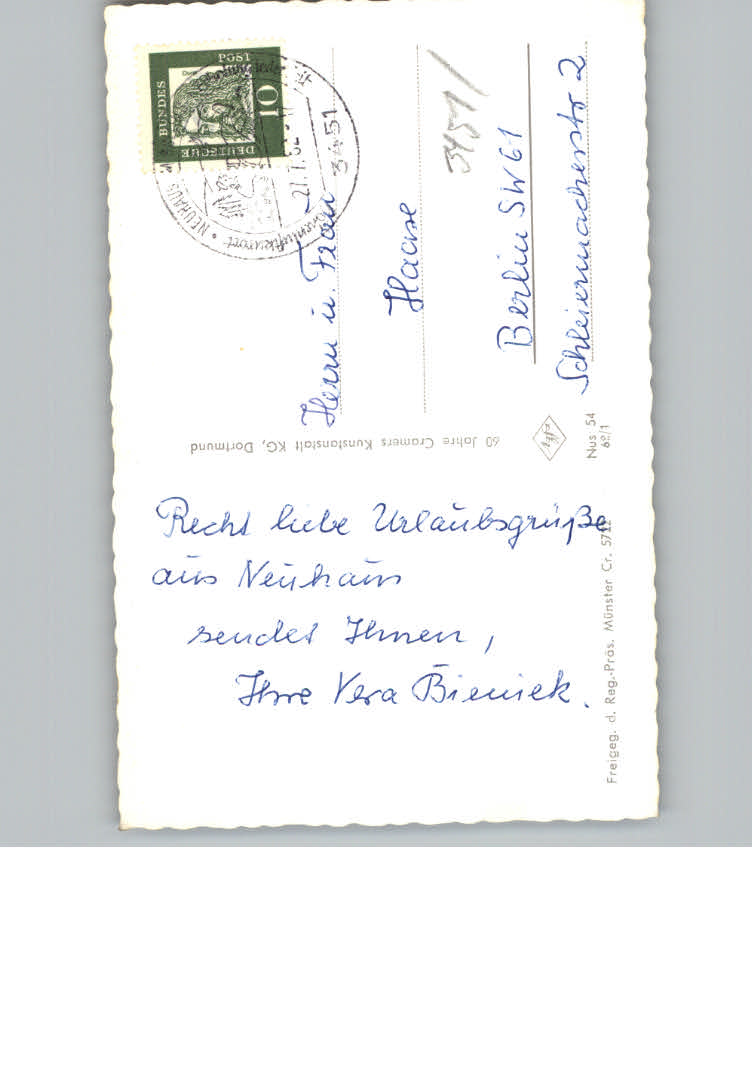 Recht liebe Urlaubsgrüße
aus Neuhaus
sendet Ihnen,
Ihre Vera Bieniek.
Herrn u. Frau
Haase
Berlin SW 61
Schleiermacherstr 2
3451
DEUTSCHE
BUNDES
POST
10
NEUHAUS
27.7.62
3451
60 Jahre Cramers Kunstanstalt KG, Dortmund
Nus 54
Freigeg. d. Reg.-Präs. Münster Cr. 5712